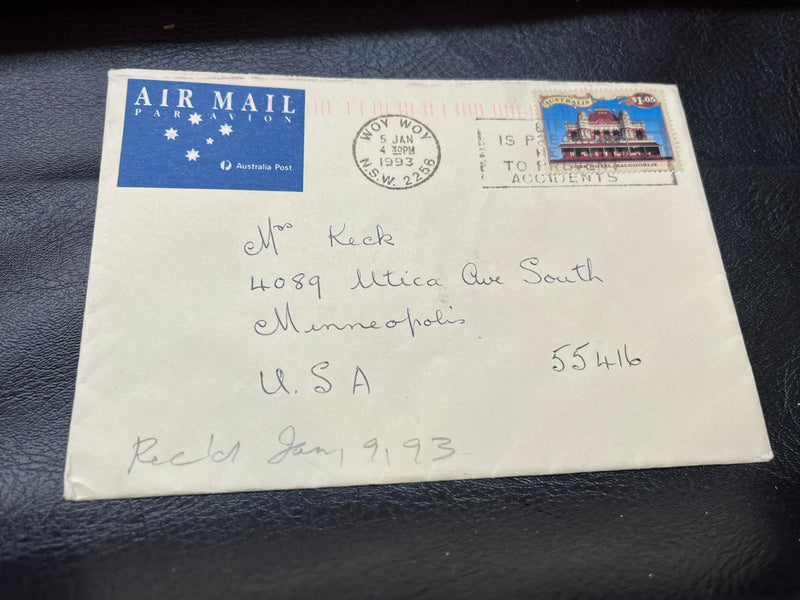 AIR MAIL
PAR AVION
Australia Post
WOY WOY
5 JAN
4 30PM
1993
N.S.W. 2256
IS
TO
ACCIDENTS
AUSTRALIA
$1.05
YORK HOTEL, KALGOORLIE
Mrs Keck
4089 Utica Ave South
Minneopolis
55416
U.S A
Rec'd Jan, 9, 93